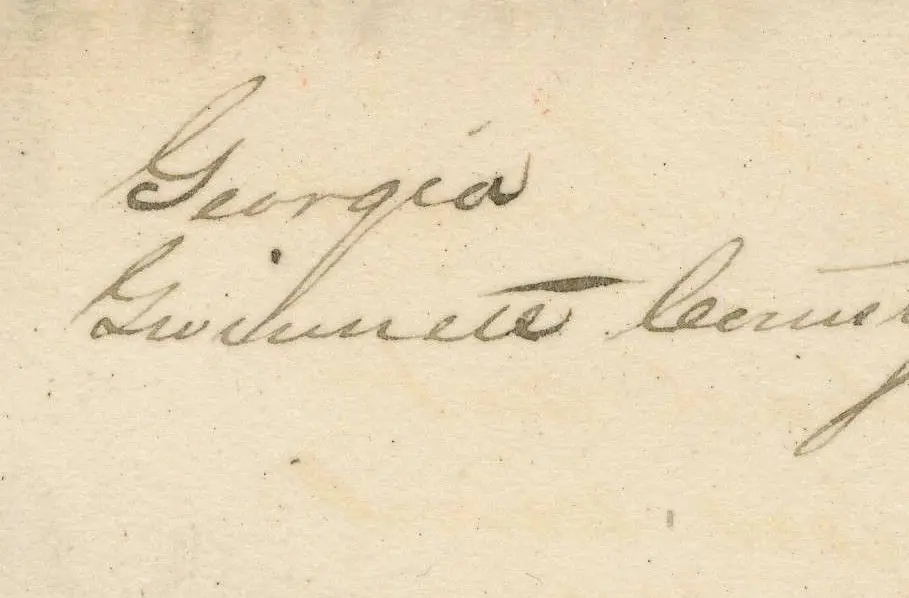 Georgia
Gwinnett County